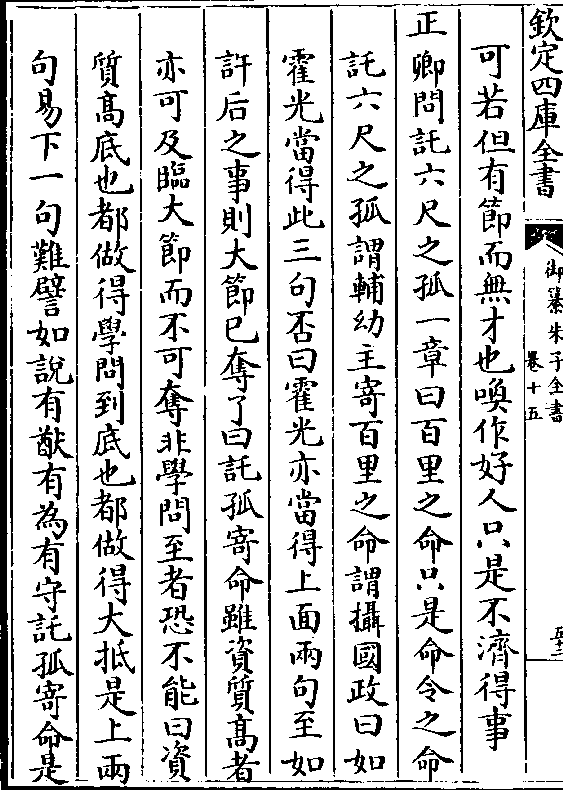 欽定四庫全書
御纂朱子全書
卷十五
可若但有節而無才也喚作好人只是不濟得事
正卿問託六尺之孤一章曰百里之命只是命令之命
託六尺之孤謂輔幼主寄百里之命謂攝國政曰如
霍光當得此三句否曰霍光亦當得上面兩句至如
許后之事則大節已奪了曰託孤寄命雖資質髙者
亦可及臨大節而不可奪非學問至者恐不能曰資
質髙底也都做得學問到底也都做得大抵是上兩
句易下一句難譬如說有猷有為有守託孤寄命是